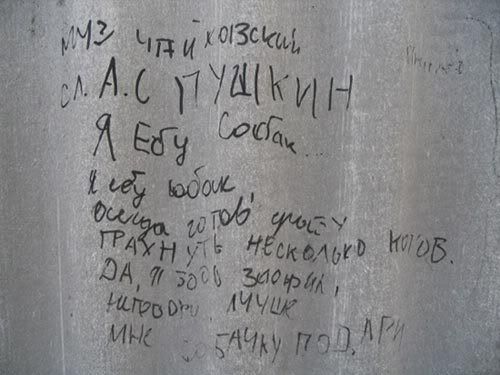 муз ЧАЙКОВСКИЙ
сл. А.С ПУШКИН
Я Ебу Собак...
Я ебу собак,
Всегда готов сразу
ТРАХНУТЬ НЕСКОЛЬКО КОТОВ.
ДА, Я
ЛУЧШЕ
МНЕ СОБАЧКУ ПОДАРИ